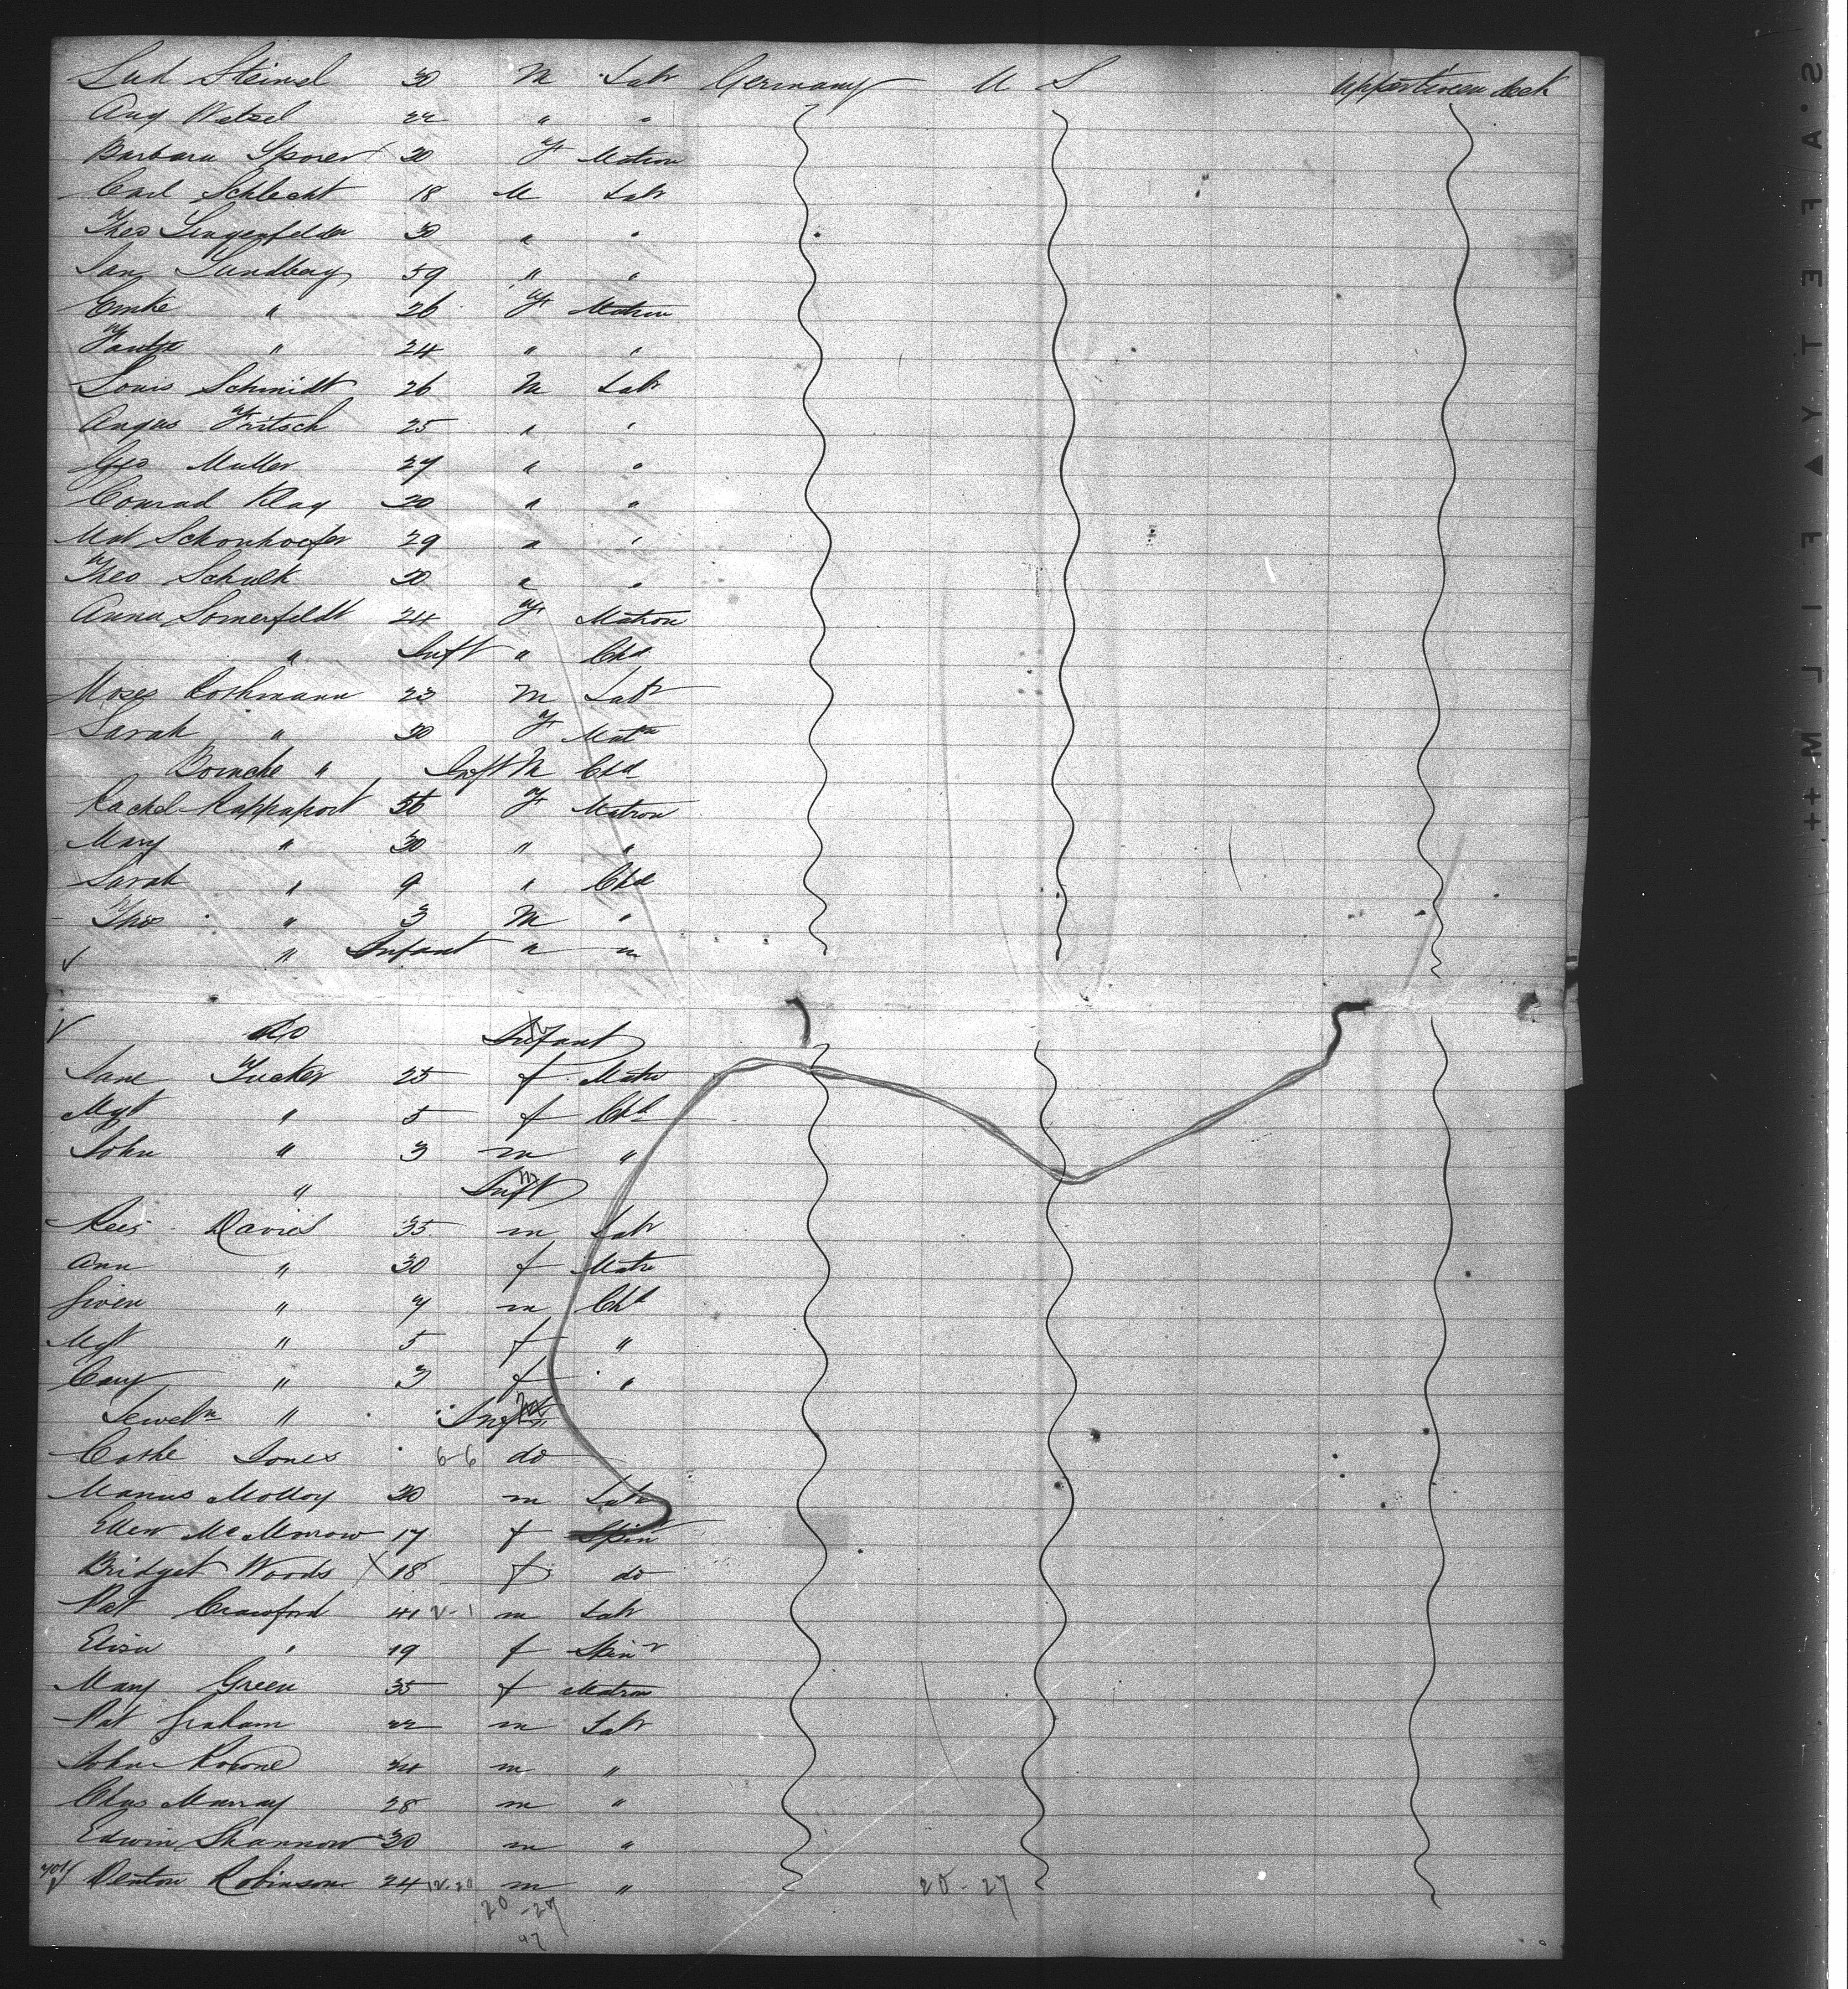 Lud Steinel 30 M Labr Germany U S Upper tween deck
Aug Wetzel 22 " "
Barbara Sporer 30 F Matron
Carl Schlecht 18 M Labr
Theo Lingenfelder 30 " "
Jan Lundberg 59 " "
Emke " 26 F Matron
" 24 " "
Louis Schmidt 26 M Labr
Fritsch 25 " "
Geo Muller 27 " "
Conrad Klag 30 " "
Mat Schonhoefer 29 " "
Theo Schulk 30 " "
Anna Somerfeldt 24 F Matron
" Inft " Chd
Moses Rothmann 23 M Labr
Sarah " 30 F Matn
" Inft M Chd
Rachel Rappaport 56 F Matron
Mary " 30 " "
Sarah " 9 " Chd
" 3 M "
" Infant " "
do Infant
Jane Tucker 25 f Matn
Mgt " 5 f Chd
John " 3 m "
" Inft
Rees Davies 35 m Labr
Ann " 30 f Matn
" 7 m Chd
Mgt " 5 f "
" 3 f "
" Inft
Cathe Jones 6-6 do
Manus Molloy 30 m Labr
Ellen McMorrow 17 f Spin
Bridget Woods X 18 f do
Pat Crawford 41 2-1 m Labr
Eliza " 19 f Spinr
Mary Green 35 f Matron
Pat Graham 22 m Labr
John 24 m "
Chas Murray 28 m "
Edwin Shannon 30 m "
Denton Robinson 24 12-20 m " 20-27
20-27
97